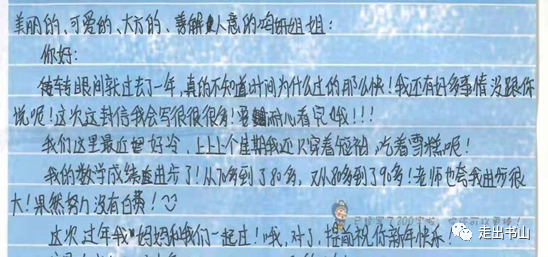 美丽的、可爱的、大方的、善解人意的鸣妍姐姐：
你好：
转眼间就过去了一年，真的不知道时间为什么过的那么快！我还有好多事情没跟你
说呢！这次这封信我会写很很很多！要耐心看完哦！！！
我们这里最近超好冷，上上上个星期我还穿着短袖，吃着雪糕呢！
我的数学成绩进步了！从70多到了80多，又从80多到了90多！老师也夸我进步很
大！果然努力没有白费！
已经写了200字啦，
这次过年我妈妈和我们一起过！哦，对了，提前祝你新年快乐！
走出书山